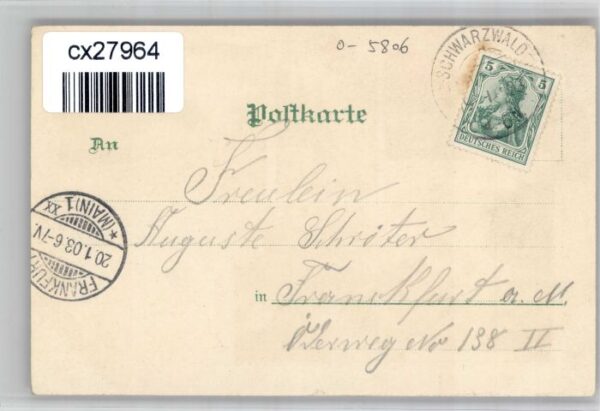 cx27964
0-5806
SCHWARZWALD
5 5
DEUTSCHES REICH
Postkarte
An
Freulein
Auguste Schröter
in Franckfurt a. M
No 138 II
FRANKFURT
*(MAIN)1 XX
20.1.03.6-7V.